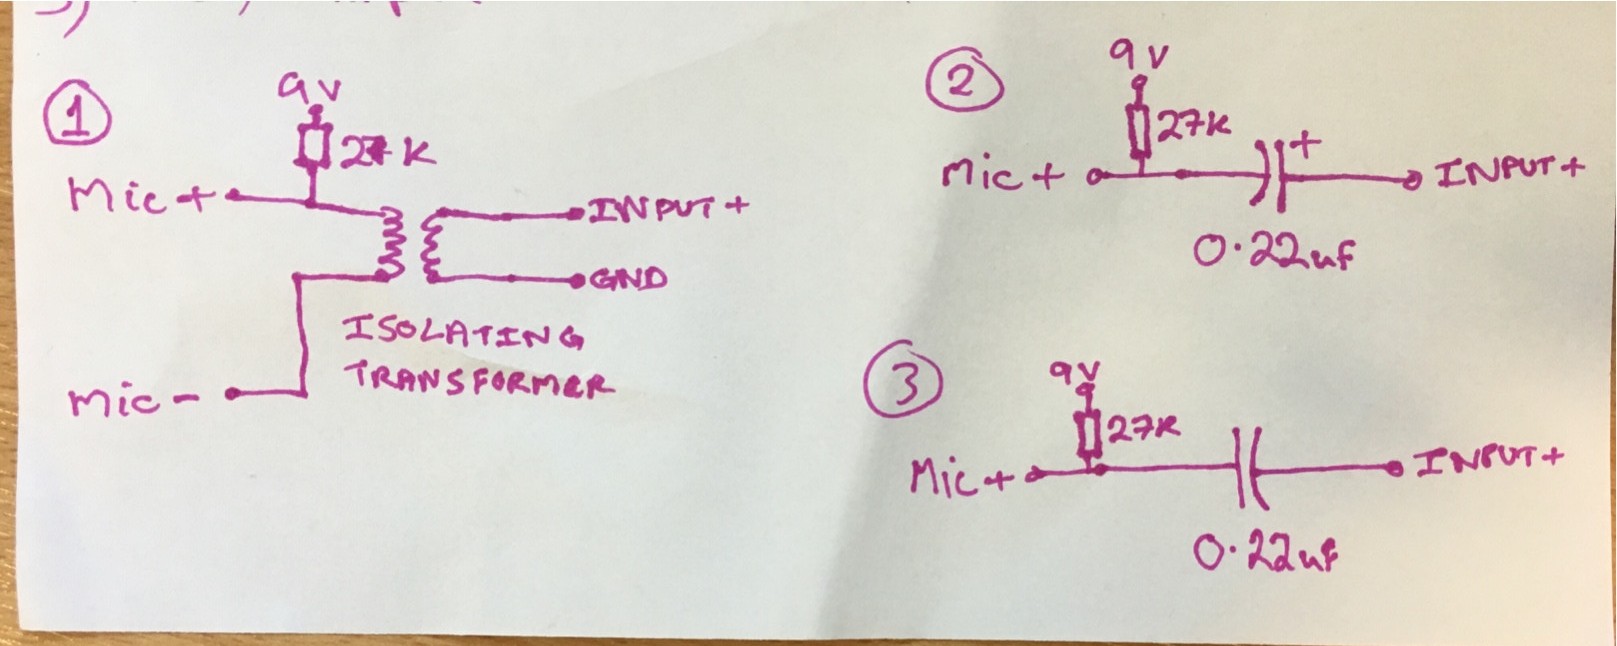 1
9V
27K
Mic+
INPUT+
GND
ISOLATING
TRANSFORMER
Mic-
2
9V
27K
Mic+
+
INPUT+
0.22uf
3
9V
27K
Mic+
INPUT+
0.22uf